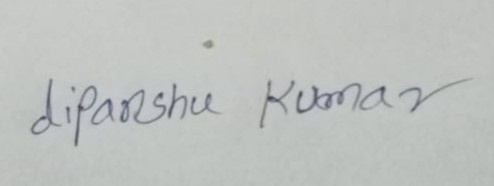 diPanshu Kumar